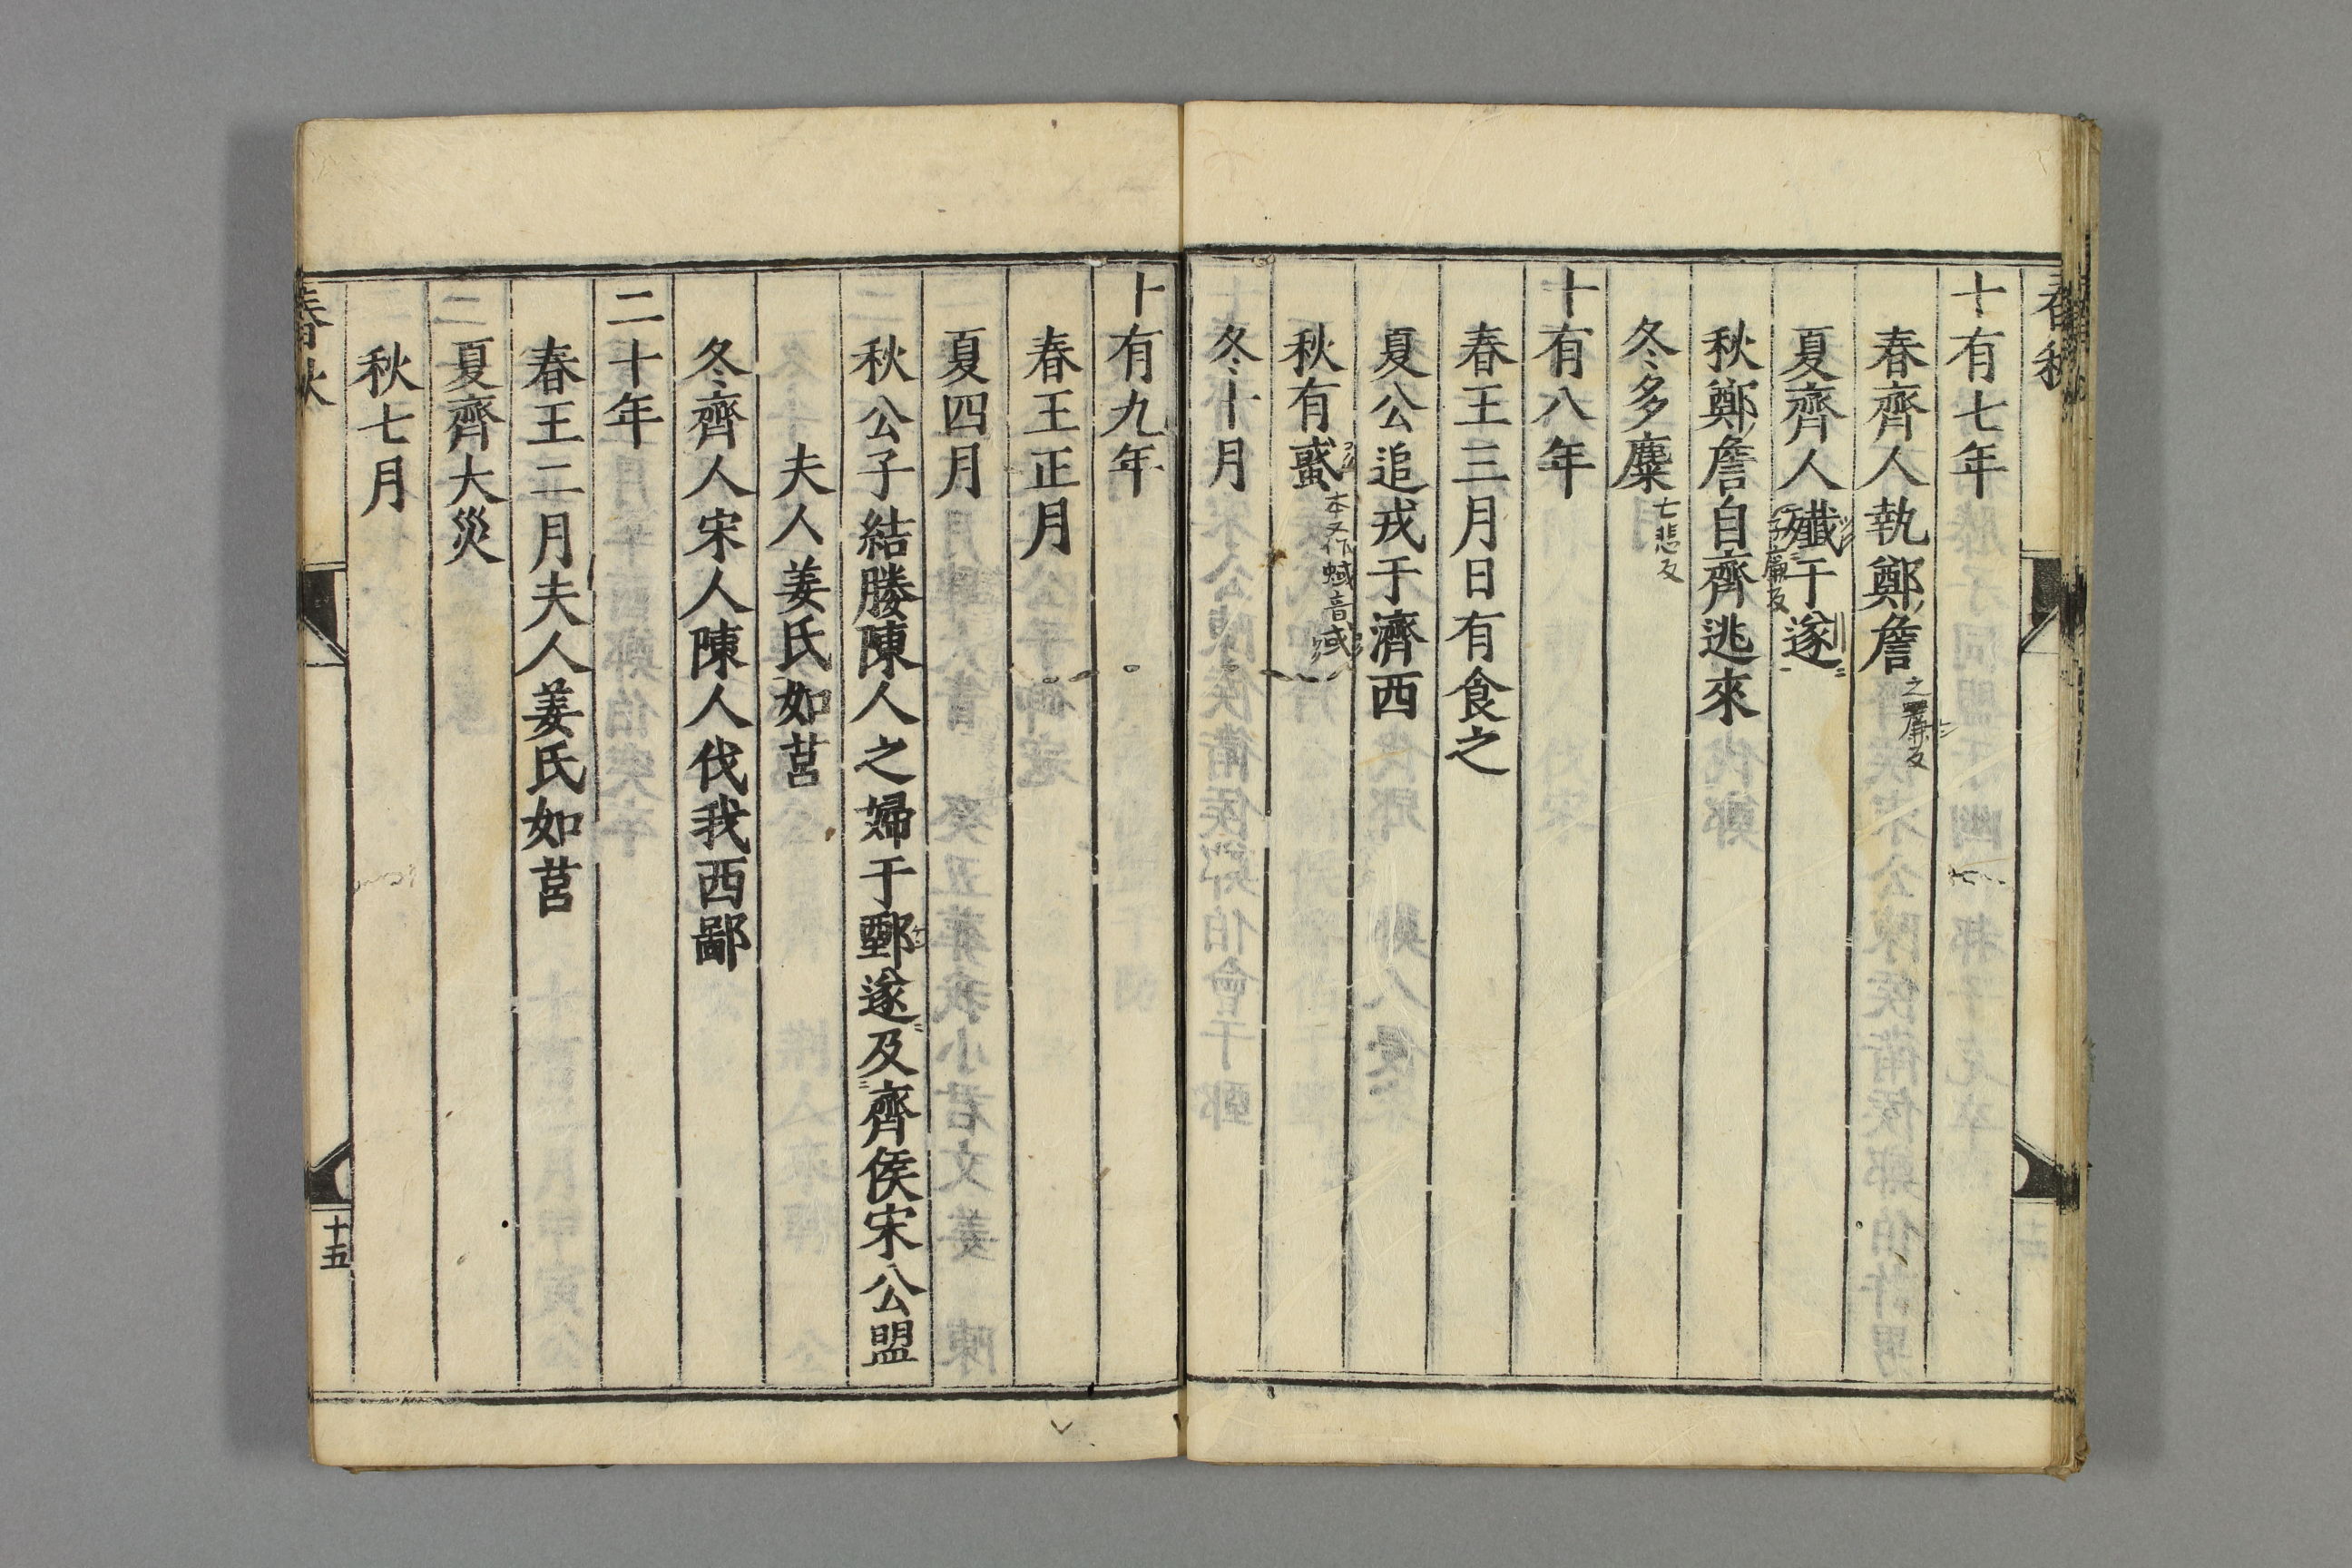 春秋
十有七年
春齊人執鄭詹 之廉反
夏齊人殲于遂 子廉反
秋鄭詹自齊逃來
冬多麋 亡悲反
十有八年
春王三月日有食之
夏公追戎于濟西
秋有蜮 本又作蜮音或
冬十月
十有九年
春王正月
夏四月
秋公子結媵陳人之婦于鄄遂及齊侯宋公盟
夫人姜氏如莒
冬齊人宋人陳人伐我西鄙
二十年
春王二月夫人姜氏如莒
夏齊大災
秋七月
春秋
十五